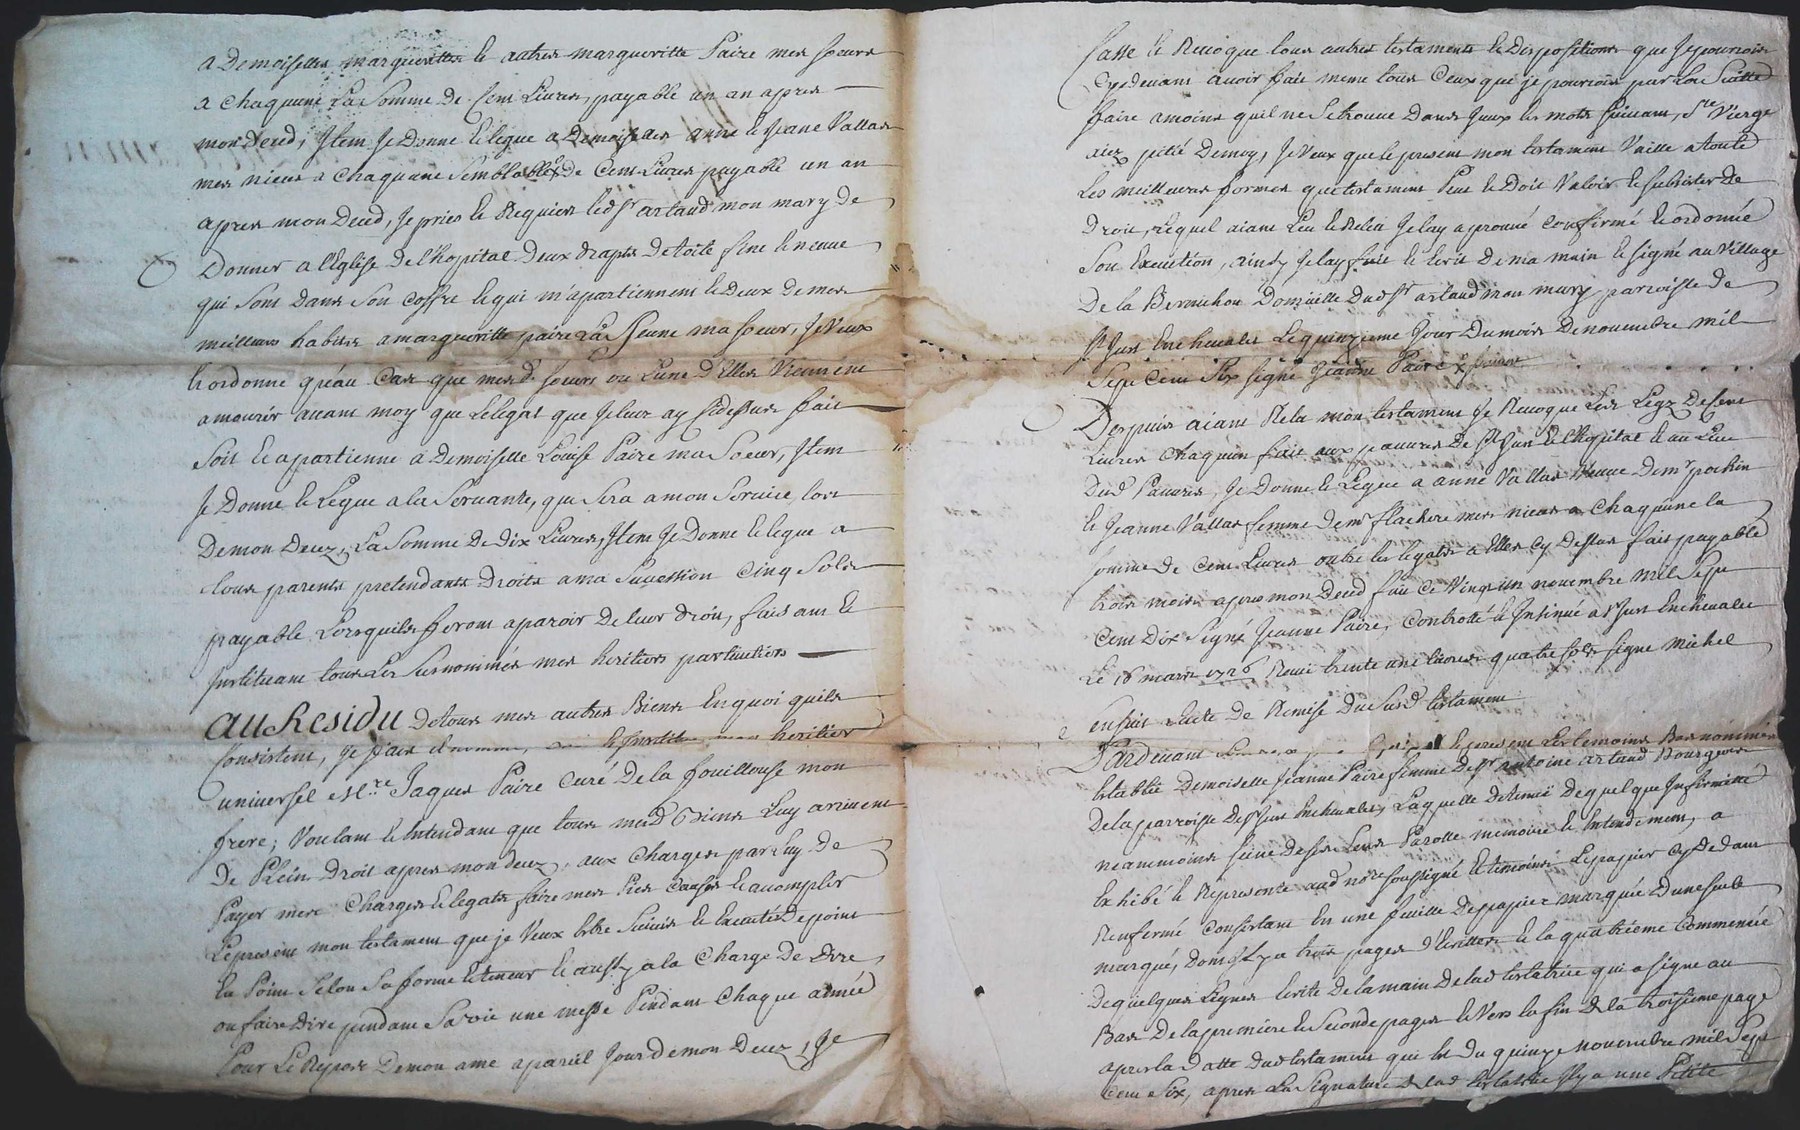 a Demoiselles marguerittes le autres margueritte Paire mes soeurs
a chaquune La Somme De Cent Livres, payable un an apres
mon Deced, Item Je Donne Et legue a Demoiselles anne et Jeane Vallas
mes nieces a Chaquune Semblable De Cent Livres payable un an
apres mon Deced, Je pries Et Requiers led. Sr artaud mon mary de
Donner a l'Eglise De l'hopital Deux draps De toile fine Et neuve
qui sont Dans son Coffre Et qui m'apartiennent Et Deux De mes
meilleurs habits a margueritte paire La Jeune ma soeur, Je Veux
Et ordonne qu'au Cas que mesd. soeurs ou L'une d'Elles Viennent
a mourir avant moy que Le legat que Je leur ay Cy dessus fait
soit Et apartienne a Demoiselle Louise Paire ma Soeur, Item
Je Donne Et Legue a la Servante, qui Sera a mon Service lors
De mon Decez, La Somme De Dix Livres, Item Je Donne Et legue a
tous parents pretendants Droits a ma Succession Cinq Sols
payable Lorsquils feront aparoir De leur droit, faisant Et
Instituant tous Les Surnommés mes heritiers particuliers
Au Residu De tous mes autres Biens En quoi quils
Consistent, Je fais Et nomme, Et Institue mon heritier
universel Mre Jaques Paire Curé De la fouillouse mon
frere; Voulant Et Entendant que tous mesd Biens Luy arrivent
De Plein Droit apres mon decez, aux Charges par Luy De
Payer mes Charges Et legats faire mes Pies Causes Et acomplir
Le present mon testament que je Veux Estre Suivis Et Executés De point
En Point Selon Sa forme Et teneur Et aussy a la Charge De Dire
ou faire Dire pendant Sa vie une messe Pendant Chaque année
Pour Le Repos De mon ame a pareil Jour De mon Decez, Je
Casse Et Revoque tous autres testaments Et Dispositions que Je pourrois
Cy devant avoir fait meme tous Ceux que je pourrois par La Suitte
faire a moins quil ne Se trouve Dans Iceux les mots suivant, Ste Vierge
aiez pitié De moy, Je Veux que le present mon testament Vaille a toute
Les meilleures formes que testament Peut Et Doit Valoir Et subsister De
Droit, Lequel aiant Leu Et Releu Je l'ay aprouvé Confirmé Et ordonné
Son Execution, ainsy Je l'ay fait Et Ecrit De ma main Et signé au Village
De la Bernichon Domicille Dud. Sr artaud mon mary parroisse de
St Just En chevalet Le quinzieme Jour Du mois De novembre mil
Sept Cent Six signé Jeanne Paire
Depuis aiant Relu mon testament Je Revoque Les Legz De Cent
Livres Chaqu'un fait aux pauvres De St Just Et l'hopital Et au Lieu
Desd Pauvres, Je Donne Et Legue a anne Vallas Veuve De mr pochin
Et Jeanne Vallas femme De mr flachere mes nieces a Chaquune la
somme De Cent Livres outre les legats a Elles Cy Dessus fait payable
trois mois apres mon Deced fait Ce Vingt un novembre mil Sept
Cent Dix Signé Jeanne Paire, Controllé Et Insinué a St Just En chevalet
Le 16 mars 1726 Receu trente une livres quatre sols signé michel
Ensuit Lacte De Remise Du Susd. testament
Pardevant Et present Les temoins Bas nommés
Establie Demoiselle Jeanne Paire femme De Sr antoine artaud Bourgeois
De la parroisse De St Just En chevalet, Laquelle Detenue De quelque Infirmité
neanmoins seine De ses Sens Parolle memoire Et Entendement, a
Exhibé Et Representé aud nore soussigné Et temoins Le papier Cy Dedans
Renfermé Consistant En une feuille De papier marqué D'une seule
marque, Dont Il y a trois pages d'Ecritture Et la quatrieme Commencée
De quelques Lignes Ecrite De la main De lad testatrice qui a signé au
Bas De la premiere Et Seconde pages Et Vers la fin De la troisieme page
apres la Datte Dud testament qui Est Du quinze novembre mil Sept
Cent Six, apres La Signature De lad testatrice Il y a une Petite